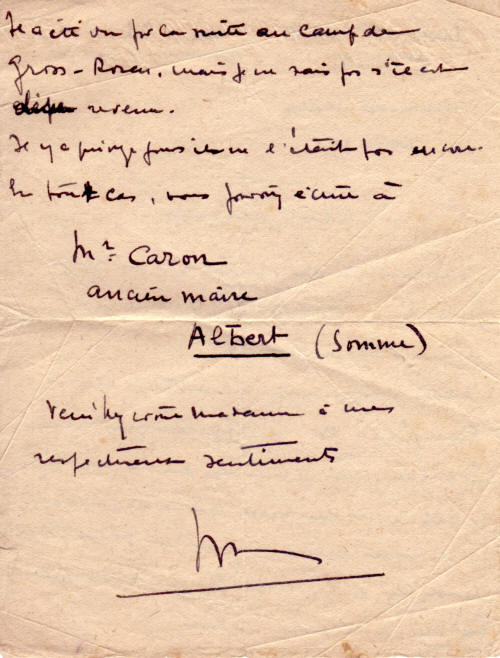 Il a été vu par la suite au camp de
Gross-Rosen, mais je ne sais pas s'il est
déjà revenu.
Il y a quinze jours il ne l'était pas encore.
En tout cas, vous pouvez écrire à
Mr Caron
ancien maire
Albert (Somme)
Veuillez croire madame à mes
respectueux sentiments